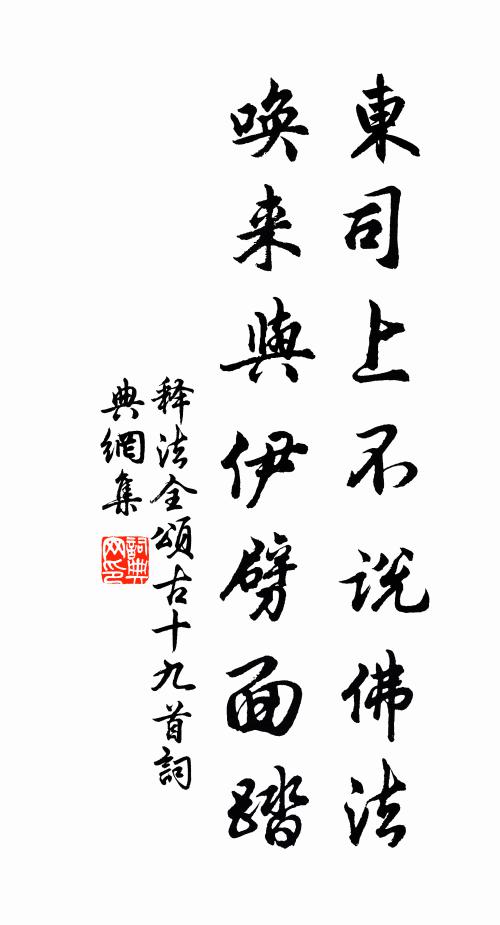 東司上不説佛法
喚来與伊劈面踏
释法全頌古十九首詞
典網集
詞典
网印